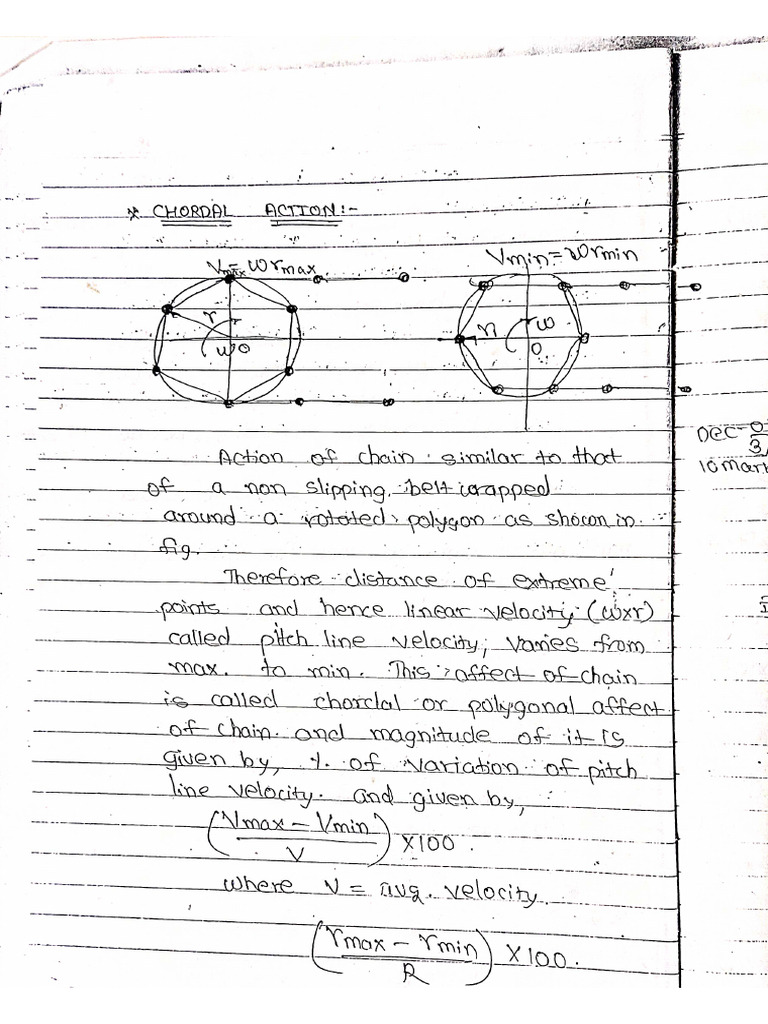 * CHORDAL ACTION:-
Vmax = ωrmax
Vmin = ωrmin
r
ω O
r1
ω
O
Action of chain similar to that
of a non slipping belt wrapped
around a rotated polygon as shown in
fig.
Therefore distance of extreme
points and hence linear velocity (ω×r)
called pitch line velocity, varies from
max. to min. This affect of chain
is called chordal or polygonal affect
of chain and magnitude of it is
given by, % of variation of pitch
line velocity. and given by,
(Vmax - Vmin / V) × 100.
where V = avg. velocity.
(rmax - rmin / R) × 100.
DEC-0
3
10 Mark